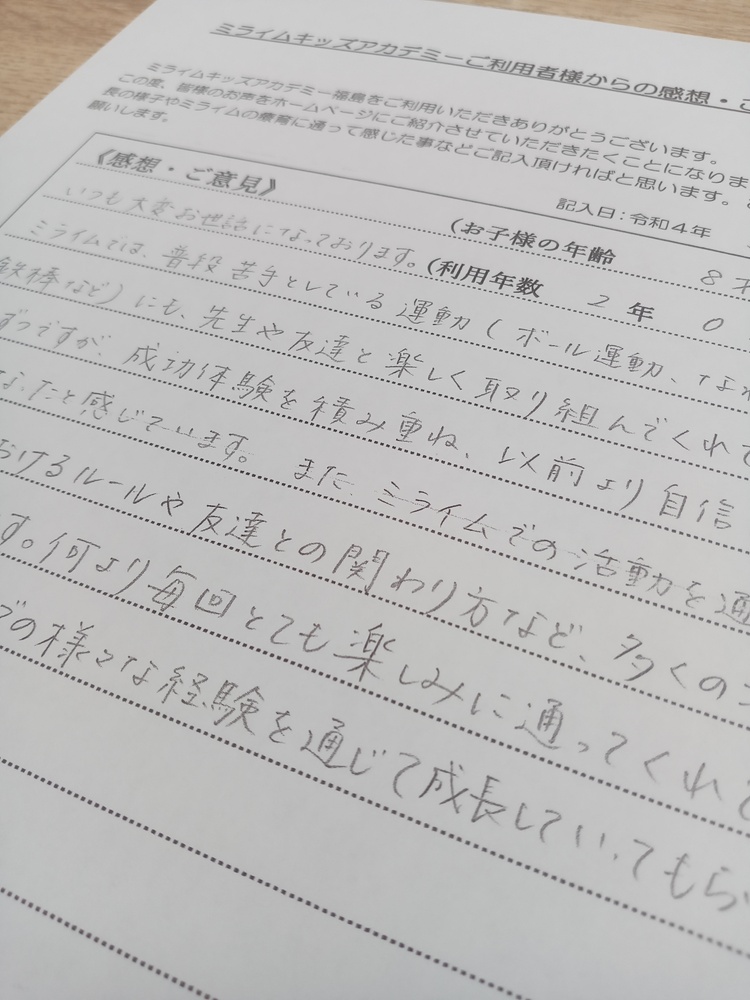 ミライムキッズアカデミーご利用者様からの感想・ご
ミライムキッズアカデミー福島をご利用いただきありがとうございます。
この度、皆様のお声をホームページにご紹介させていただきたくことになりま
長の様子やミライムの療育に通って感じた事などご記入頂ければと思います。
願いします。
記入日：令和４年
《感想・ご意見》
（お子様の年齢 8才
（利用年数 2 年 0
いつも大変お世話になっております。
ミライムでは、普段苦手としている運動（ボール運動、なわ
鉄棒など）にも、先生や友達と楽しく取り組んでくれて
ずつですが、成功体験を積み重ね、以前より自信
なったと感じています。また、ミライムでの活動を通
おけるルールや友達との関わり方など、多くの
す。何より毎回とても楽しみに通ってくれて
での様々な経験を通じて成長していってもら